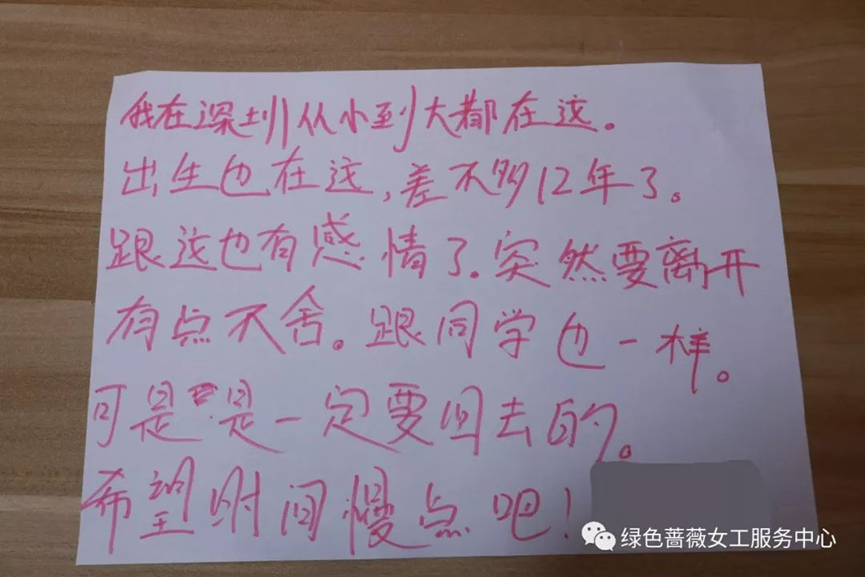 我在深圳从小到大都在这。
出生也在这,差不多12年了。
跟这也有感情了.突然要离开
有点不舍。跟同学也一样。
可是是一定要回去的。
希望时间慢点吧!
绿色蔷薇女工服务中心